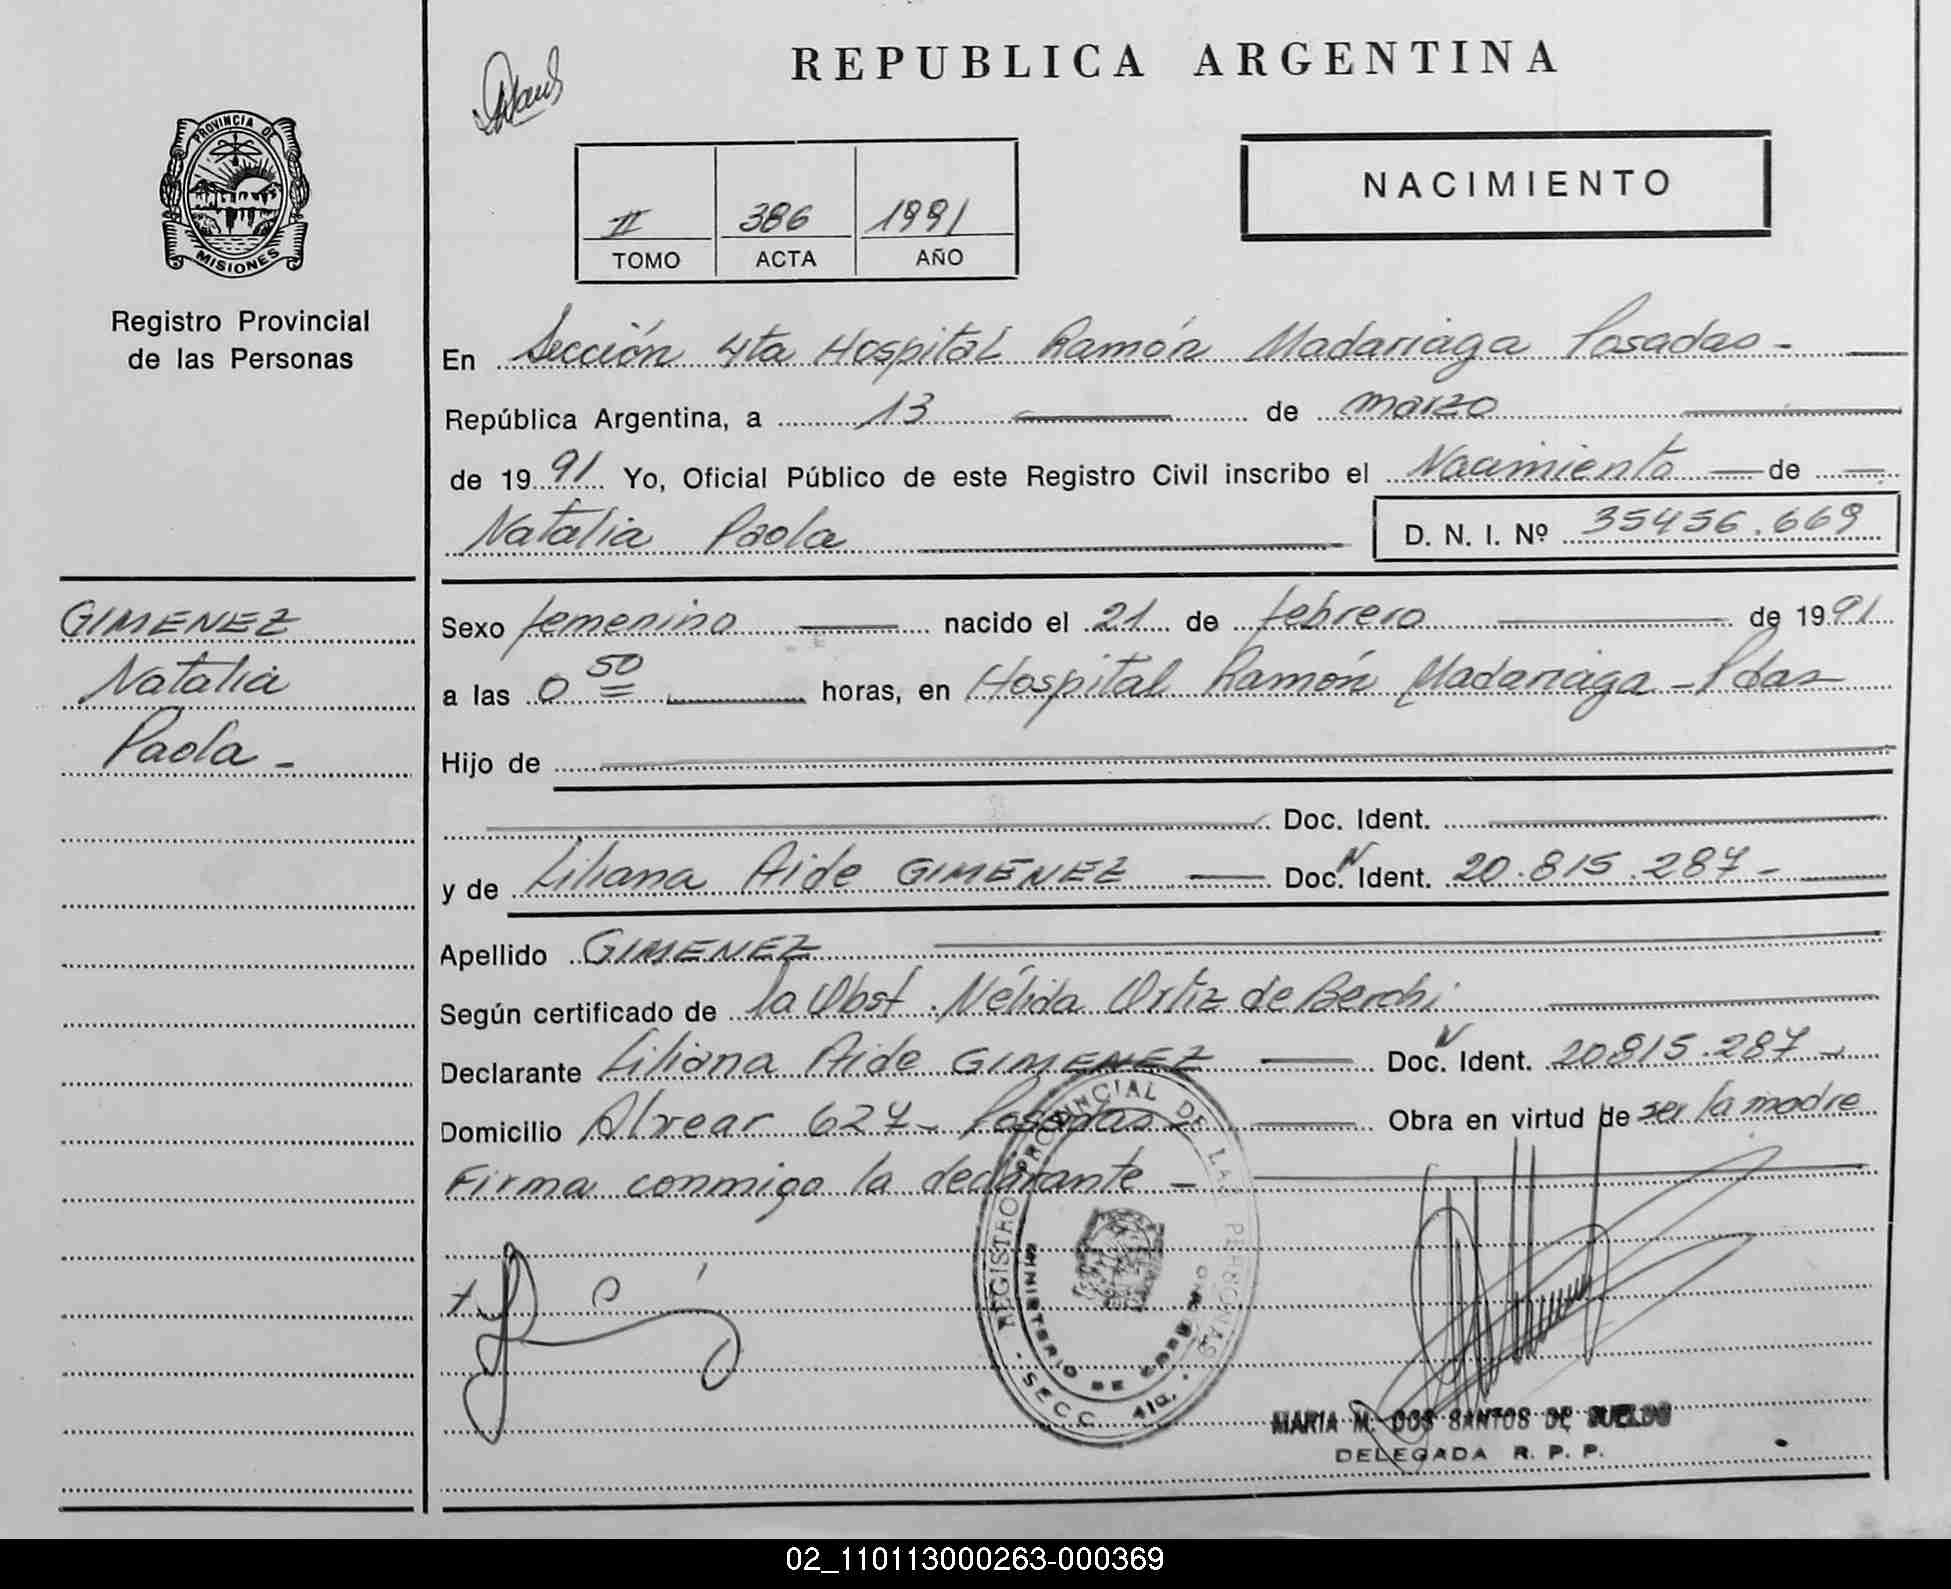 REPUBLICA ARGENTINA
PROVINCIA DE
MISIONES
Registro Provincial
de las Personas
NACIMIENTO
II 386 1991
TOMO ACTA AÑO
En Sección 4ta Hospital Ramón Madariaga Posadas -
República Argentina, a 13 de marzo
de 1991 Yo, Oficial Público de este Registro Civil inscribo el Nacimiento de
Natalia Paola D. N. I. Nº 35456.669
GIMENEZ
Natalia
Paola -
Sexo femenino nacido el 21 de febrero de 1991
a las 0 50 horas, en Hospital Ramón Madariaga - Pdas
Hijo de
Doc. Ident.
y de Liliana Aide GIMENEZ Doc. N Ident. 20.815.287 -
Apellido GIMENEZ
Según certificado de la Obst. Nélida Ortiz de Berchi
Declarante Liliana Aide GIMENEZ Doc. N Ident. 20815.287 -
Domicilio Alvear 627 - Posadas Obra en virtud de ser la madre
Firma conmigo la declarante -
REGISTRO PROVINCIAL DE LAS PERSONAS
MINISTERIO DE GOBIERNO
SECC. 4ta.
MARIA M. DOS SANTOS DE SUELDO
DELEGADA R. P. P.
02_110113000263-000369